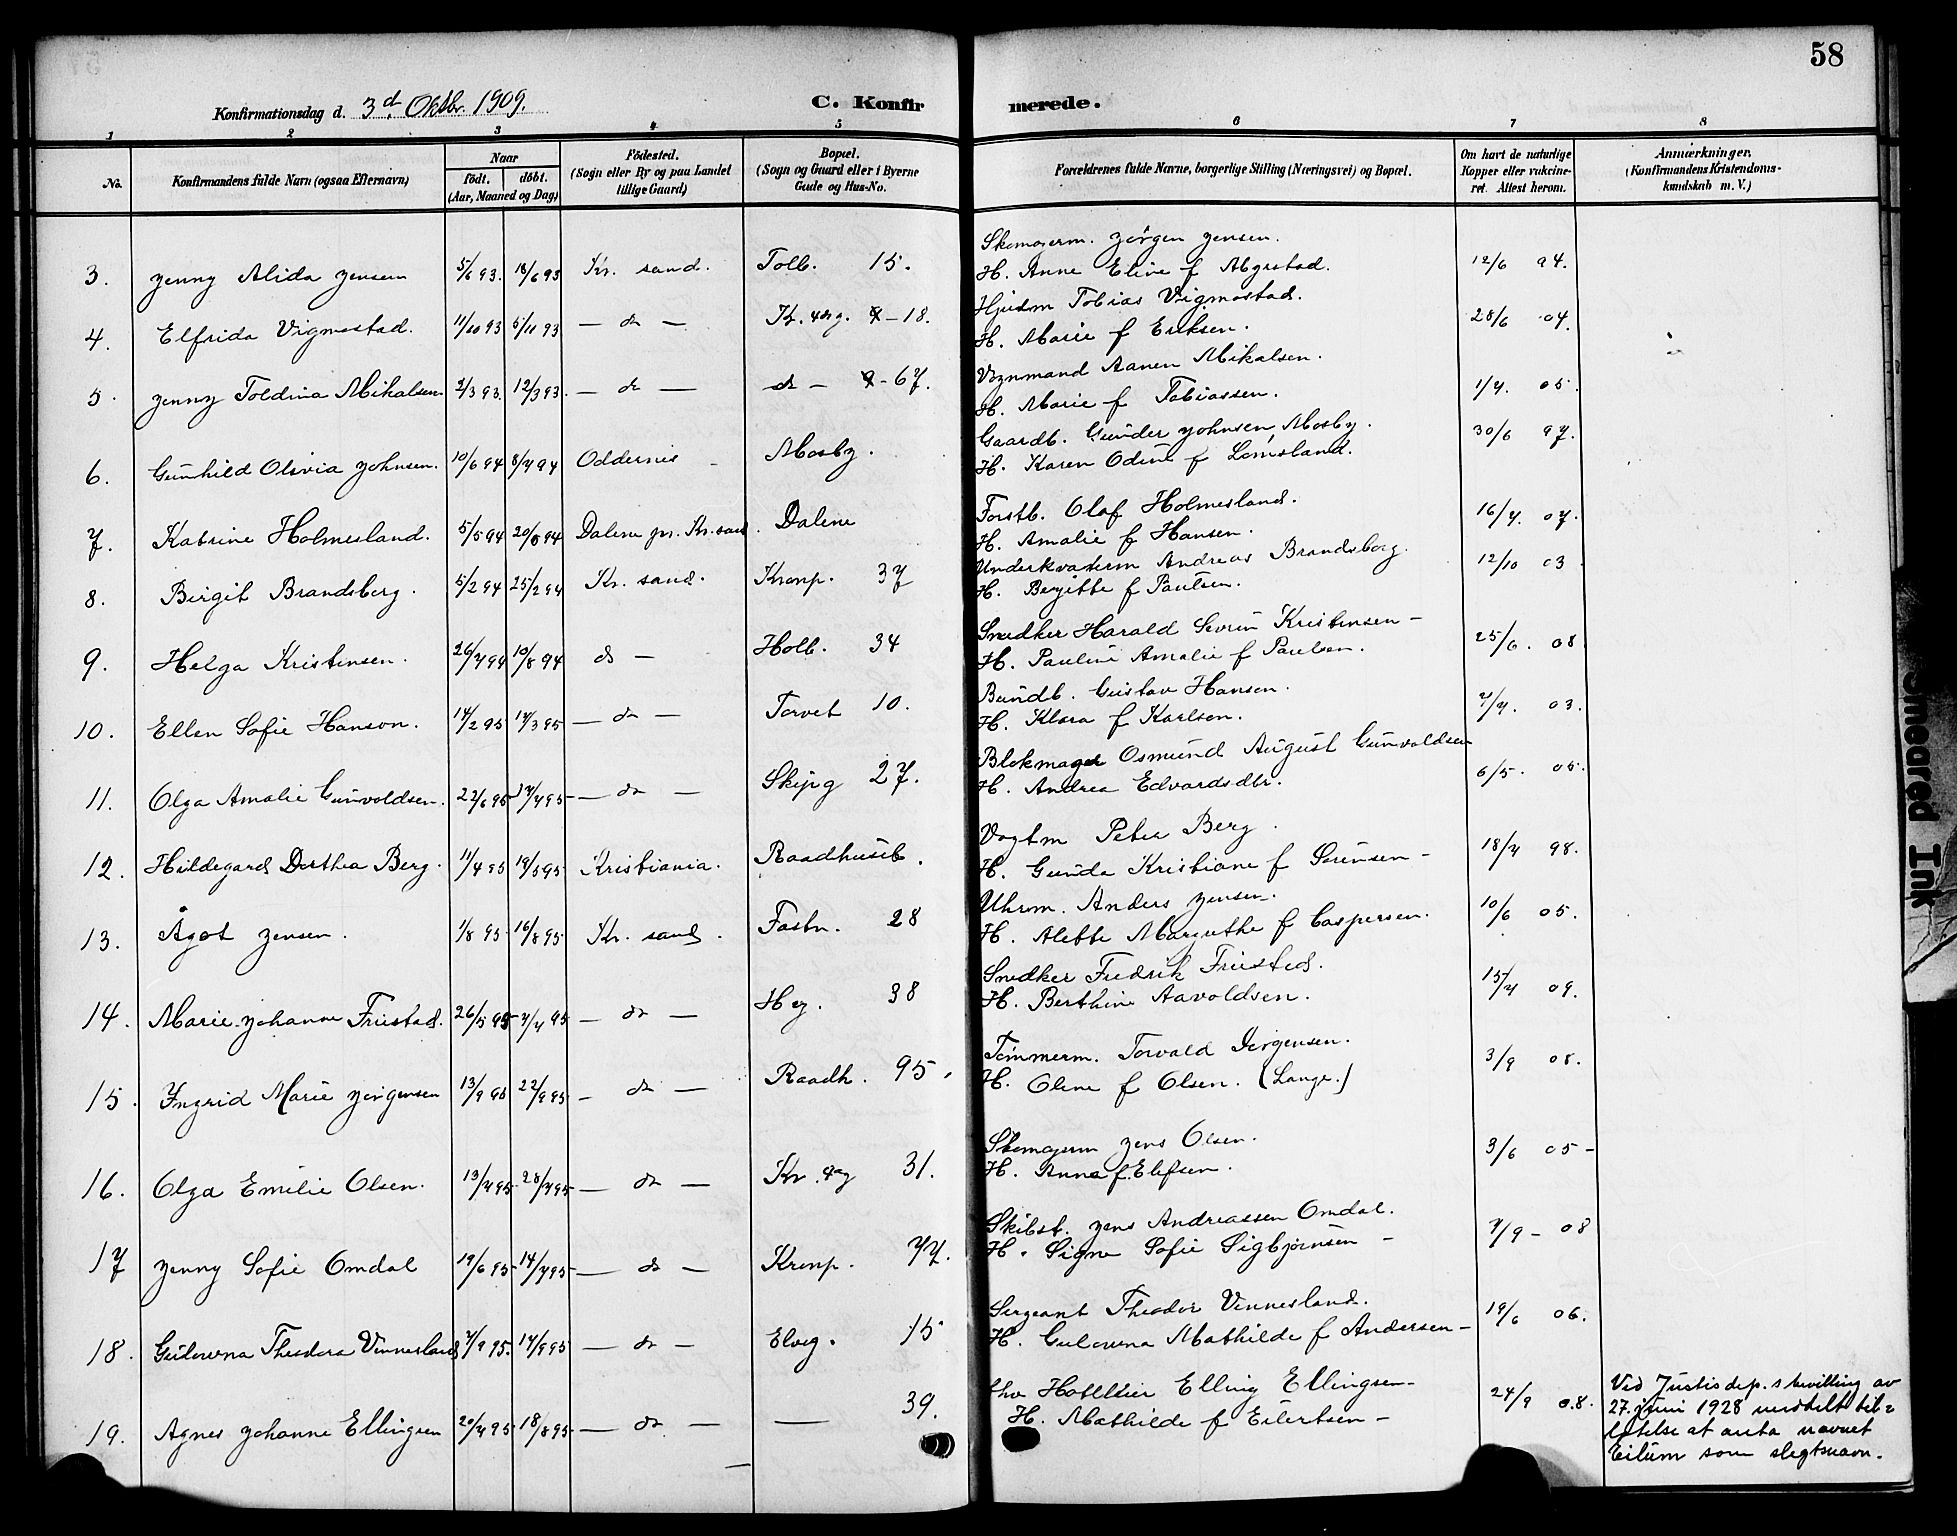 58
Konfirmationsdag d. 3d Oktbr. 1909.
C. Konfirmerede.
1 2 3 4 5 6 7 8
No.
Konfirmandens fulde Navn (ogsaa Efternavn)
Naar
födt. döbt.
(Aar, Maaned og Dag)
Födested.
(Sogn eller By og paa Landet
tillige Gaard)
Bopæl.
(Sogn og Gaard eller i Byerne
Gade og Hus-No.
Forældrenes fulde Navne, borgerlige Stilling (Næringsvei) og Bopæl.
Om havt de naturlige
Kopper eller vakcine-
ret. Attest herom.
Anmærkninger.
(Konfirmandens Kristendoms-
kundskab m. V.)
Skomagerm. Jörgen Jensen.
3. Jenny Alida Jensen 5/6 93. 18/6 93 Kr. sand. Tolb. 15. H. Anne Eline f 12/6 94.
Tobias Vigmostad.
4. Elfrida Vigmostad. 11/10 93 5/11 93 — do — Kr. 18. H. Marie f Eriksen. 28/6 04.
Vognmand Aanen Mikalsen.
5. Jenny Toldina Mikalsen 2/3 93. 12/3 93. — do — do - 67. H. Marie f Tobiassen. 1/7. 05.
Gaardb. Gunder Johnsen Mosby.
6. Gunhild Olivia Johnsen. 10/6 94 8/7 94 Oddernes Mosby. H. Karen Odine f Lömsland. 30/6 97.
Forstb. Olaf Holmesland.
7. Katrine Holmesland. 5/5 94 Dalene pr. Kr. sand. Dalene H. Amalie f Hansen. 16/7. 07.
Andreas Brandsberg.
8. Birgit Brandsberg. 5/2 94 25/2 94 Kr. sand. Kronp. 37 H. Bergitte f Paulsen. 12/10 03
Snedker Harald Severin Kristensen -
9. Helga Kristensen. 26/7 94 10/8 94 do — Holb. 34 H. Pauline Amalie f Paulsen. 25/6. 08
Bundtb. Gustav Hansen.
10. Ellen Sofie Hanson. 14/2 95 17/3 95 — do — Torvet 10. H. Klara f Karlsen. 7/7. 03.
Blokmager Osmund August Gunvaldsen
11. Olga Amalie Gunvaldsen. 22/6 95 — do — Skipg 27. H. Andrea Edvardsdtr. 6/5. 05.
Vagtm Peter Berg.
12. Hildegard Dorthea Berg. 11/4 95 19/5 95 Kristiania. Raadhuset. H. Gunda Kristiane f Sörensen - 18/7 98.
Uhrm. Anders Jensen.
13. Ågot Jensen. 1/8 95 16/8 95 Kr. sand. Fastn. 28 H. Alette Margrethe f Caspersen. 10/6 05.
Snedker Fredrik Friestad.
14. Marie Johanne Friestad. 26/5 95 7/7 95 — do — H g. 38 H. Berthine Aavoldsen. 15/7 09.
Tömmerm. Torvald Jörgensen.
15. Yngrid Marie Jörgensen 13/9 95 22/9 95 — do — Raadh. 95. H. Oline f Olsen. (Lange.) 3/9 08.
Skomagerm Jens Olsen.
16. Olga Emilie Olsen. 13/7 95 28/7 95 — do — Kr. 31. H. Anna f. Elefsen. 3/6 05 -
Skibst. Jens Andreassen Omdal.
17 Jenny Sofie Omdal 19/6 95 14/7 95 — do — Kronp. 77. H. Signe Sofie Sigbjörnsen - 7/9 - 08
Sergeant Theodor Vinnesland.
18. Gulovna Theodora Vinnesland 7/9 95. — do — Elveg. 15 H. Gulovna Mathilde f Andersen - 19/6 06.
Elling Ellingsen -
19. Agnes Johanne Ellingsen 20/7 95 18/8 95 — do — — 39. H. Mathilde f Eilertsen - 24/9 08.
Ved Justisdep.s bevilling av
27. juni 1928 meddelt til-
latelse at anta navnet
Eilum som slegtsnavn.
Smeared Ink